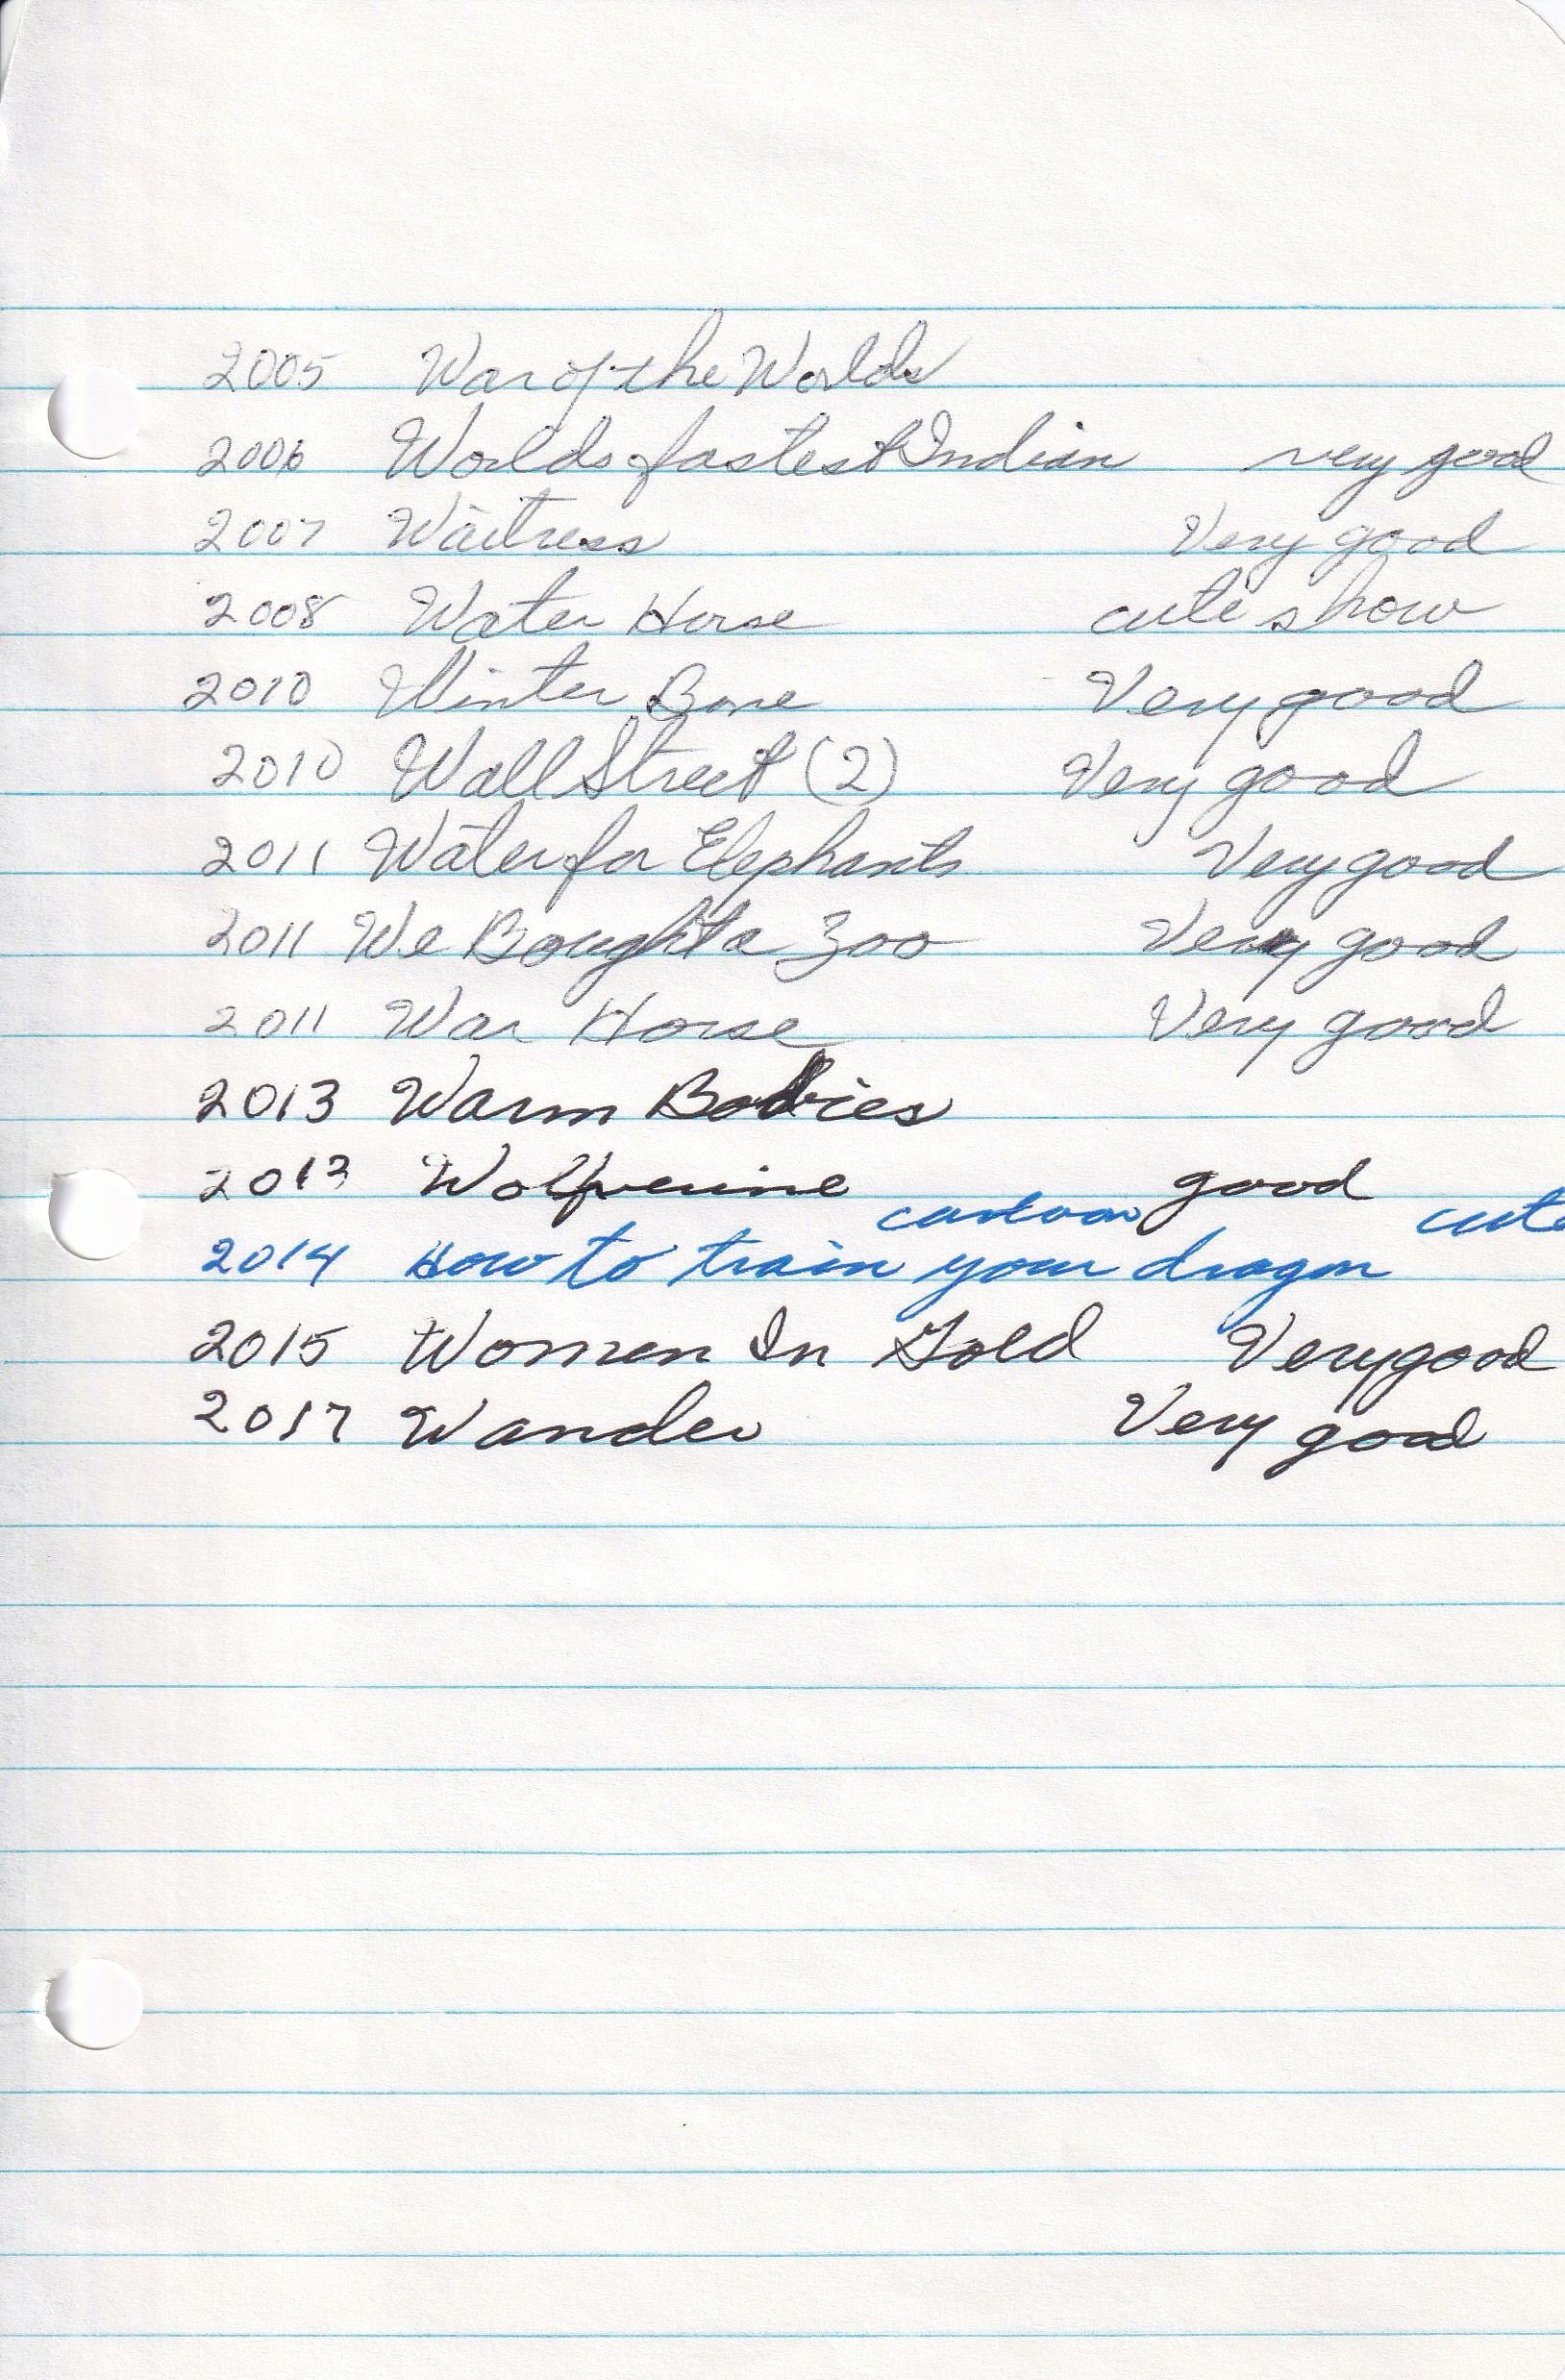 2005 War of the Worlds
2006 Worlds fastest Indian very good
2007 Waitress Very good
2008 Water Horse cute show
2010 Winter Bone Very good
2010 Wall Street (2) Very good
2011 Water for Elephants Very good
2011 We Bought a Zoo Very good
2011 War Horse Very good
2013 Warm Bodies
2013 Wolfverine good
cartoon cute
2014 How to train your dragon
2015 Women In Gold Very good
2017 Wander Very good